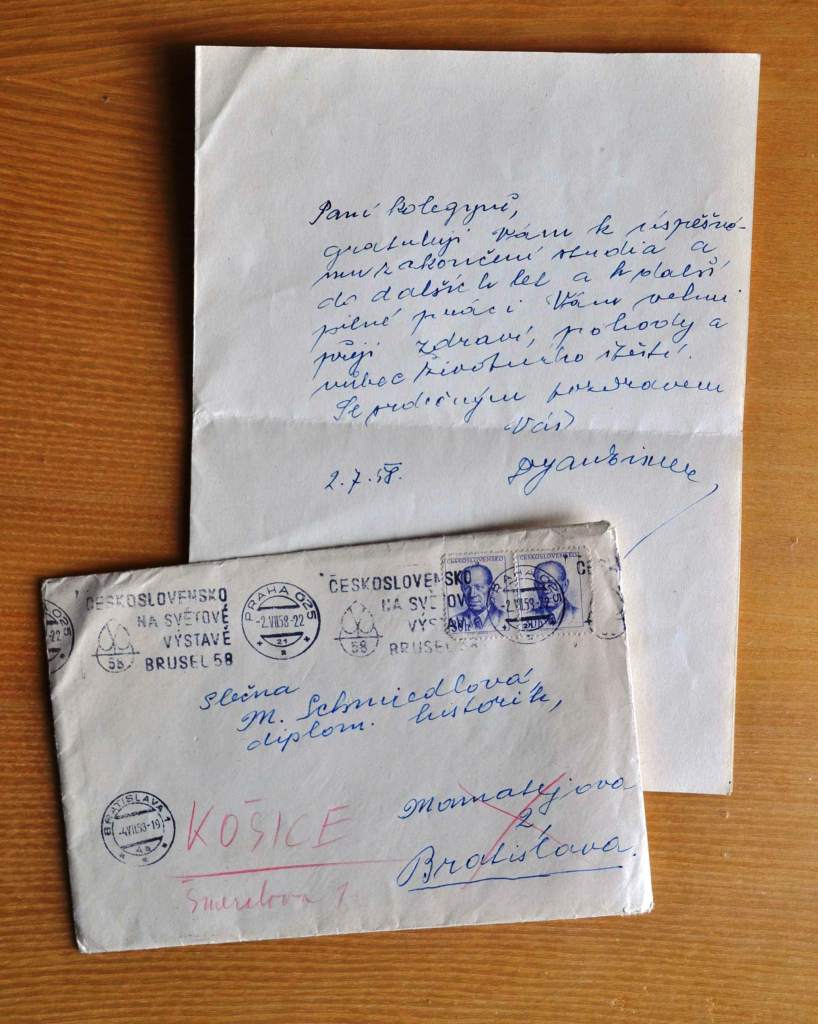 Paní kolegyně,
gratuluji Vám k úspěšné-
mu zakončení studia a
do dalších let a k další
pilné práci Vám velmi
přeji zdraví, pohody a
vůbec životného štěstí.
Se srdečným pozdravem
Váš
2.7.58.
ČESKOSLOVENSKO
NA SVĚTOVÉ
VÝSTAVĚ
BRUSEL 58
58
PRAHA 025
-2.VII.58-22
21
ČESKOSLOVENSKO
NA SVĚTOV
VÝST
BRUSEL 58
58
ČESKOSLOVENSKO
ČESKOSLOVENSKO
PRAHA 025
-2.VII.58-22
025
-22
Slečna
M. Schmiedlová,
diplom. historik,
2,
Bratislava.
BRATISLAVA 1
-4.VII.58-19
4a
KOŠICE